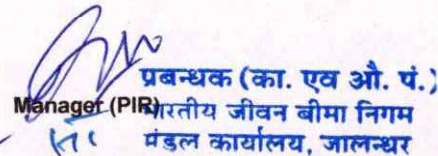 प्रबन्धक (का. एव औ. पं.)
Manager (PIR) भारतीय जीवन बीमा निगम
मंडल कार्यालय, जालन्धर